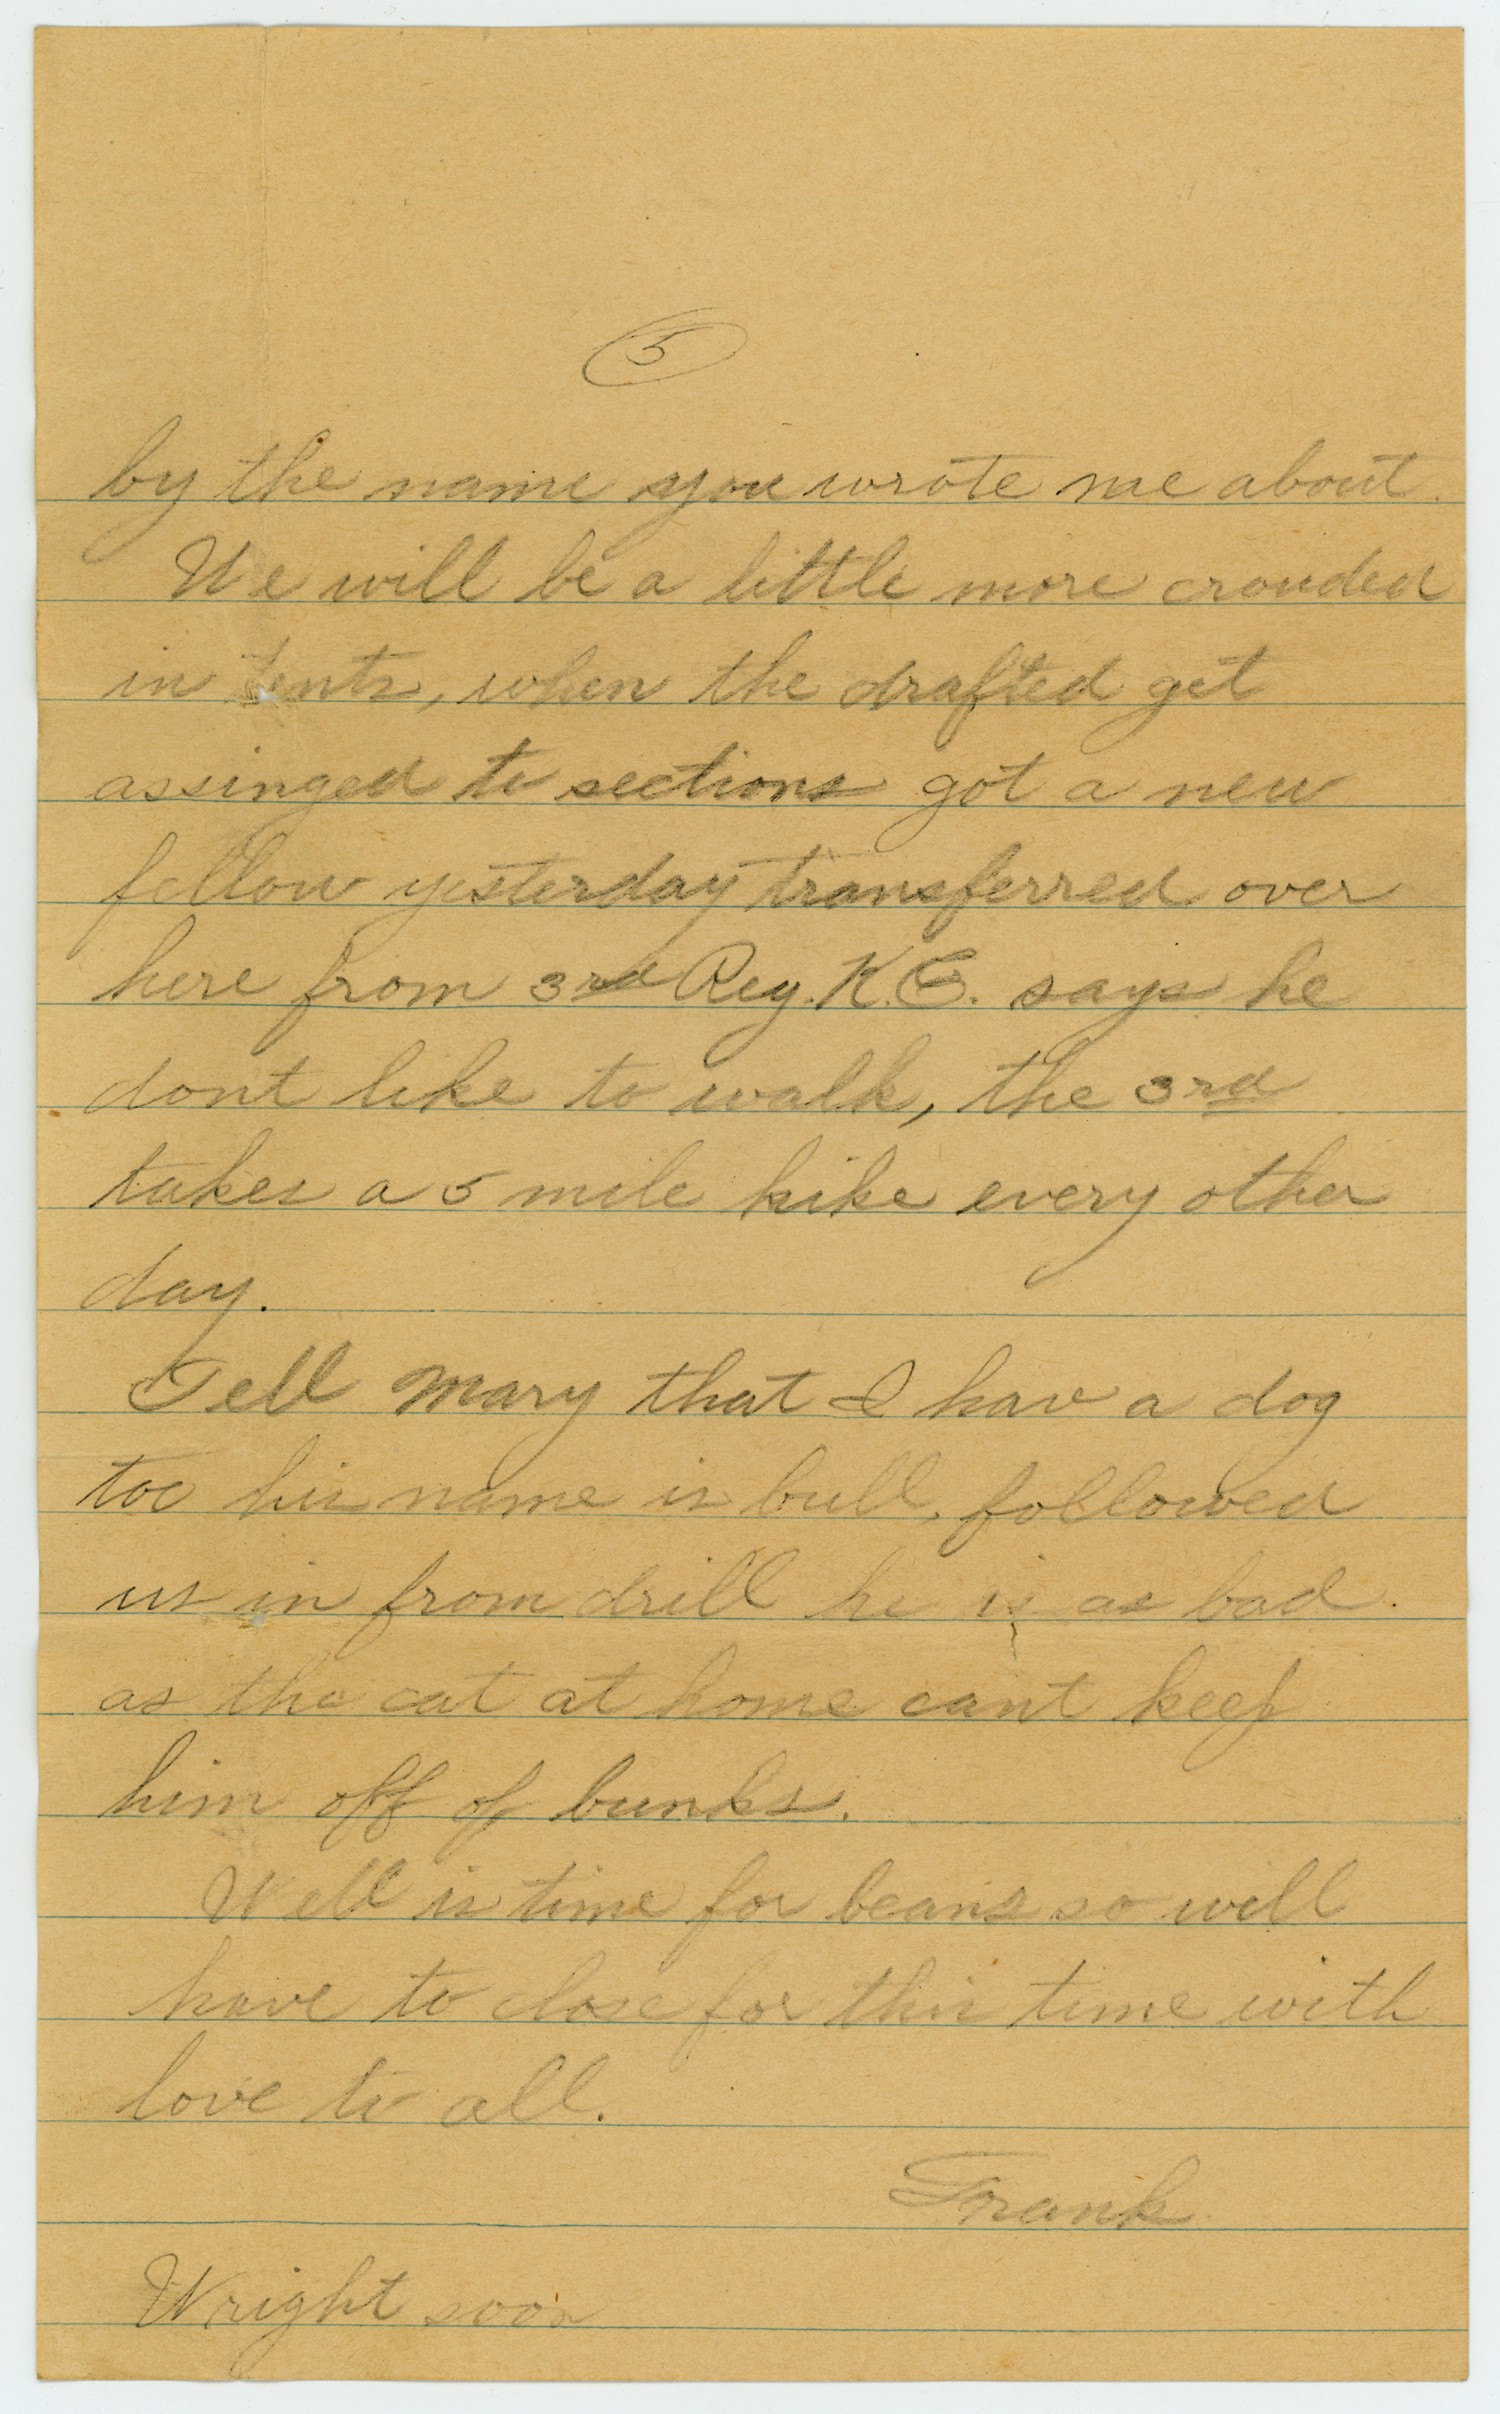 5
by the name you wrote me about.
We will be a little more crouded
in tents, when the drafted get
assinged to sections got a new
fellow yesterday transferred over
here from 3rd Reg. K.G. says he
dont like to walk, the 3rd
takes a 5 mile hike every other
day.
Tell Mary that I hav a dog
too his name is bull, followed
us in from drill he is as bad.
as the cat at home cant keep
him off of bunks.
Well is time for beans so will
have to close for this time with
love to all.
Frank
Wright soon